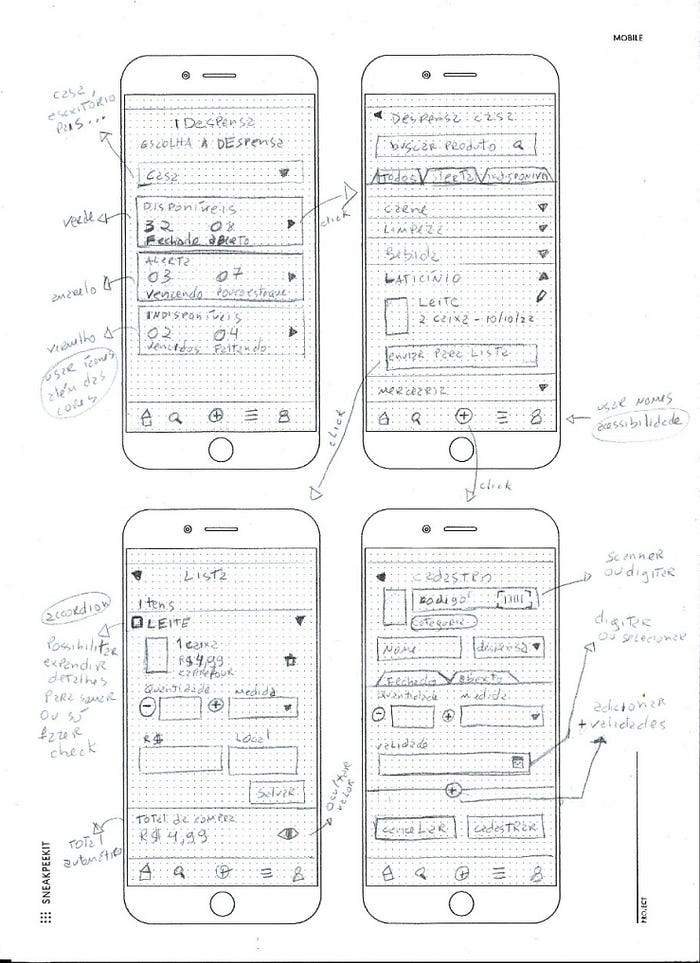 MOBILE
casa,
escritório
pais...
verde
amarelo
vermelho
usar ícones
além das
cores
Despensa
ESCOLHA A DESPENSA
Casa
DISPONÍVEIS
32 08
Fechado aberto
ALERTA
03 07
vencendo pouco estoque
INDISPONÍVEIS
02 04
vencidos Faltando
click
Despensa casa
buscar produto
Todos Alerta indisponível
carne
LIMPEZA
Bebida
LATICÍNIO
LEITE
2 caixa - 10/10/22
ENVIAR PARA LISTA
MERCEARIA
usar nomes
acessibilidade
click
click
accordion
Possibilitar
expandir
detalhes
para somar
ou só
fazer
check
TOTAL
automático
LISTA
Itens
LEITE
1 caixa
R$ 4,99
CARREFOUR
Quantidade medida
R$ Local
Salvar
TOTAL da compra
R$ 4,99
ocultar
valor
cadastro
código
categoria
Nome despensa
Fechado Aberto
Quantidade medida
validade
cancelar cadastrar
scanner
ou digitar
digitar
ou selecionar
adicionar
+ validades
SNEAKPEEKIT
PROJECT